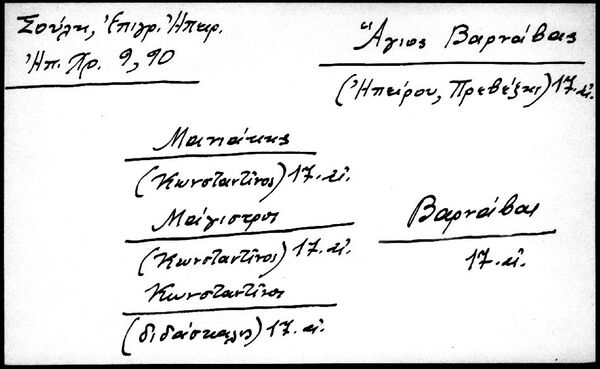 Σούλη, Ἐπιγρ. Ἠπειρ.
Ἠπ. Χρ. 9, 90
Ἅγιος Βαρνάβας
(Ἠπείρου, Πρεβέζης) 17. αἰ.
Μανιάκης
(Κωνσταντῖνος) 17. αἰ.
Μάγιστρος
(Κωνσταντῖνος) 17. αἰ.
Κωνσταντῖνος
(διδάσκαλος) 17. αἰ.
Βαρνάβας
17. αἰ.